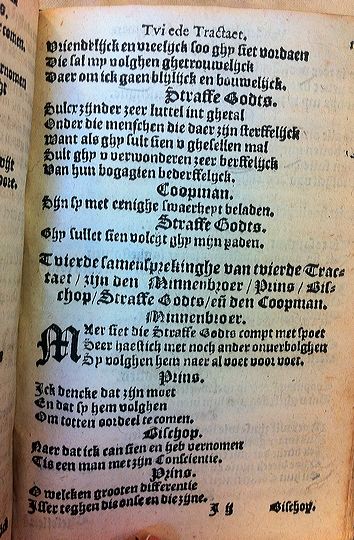 Tvi ede Tractaet.
Vriendelijck en vreelijck soo ghy siet voordaen
Die sal my volghen ghetrouwelijck
Daer om ick gaen blijlijck en bouwelijck.
Straffe Godts.
Sulcr zijnder zeer luttel int ghetal
Onder die menschen die daer zijn sterffelijck
Want als ghy sult sien v ghesellen mal
Sult ghy v verwonderen zeer derffelijck
Van hun bogagien bederffelijck.
Coopman.
Zijn sy met eenighe swaerheyt beladen.
Straffe Godts.
Ghy sullet sien volcht ghy mijn paden.
Tvierde samensprekinghe van tvierde Trac-
taet / zijn den Minnenbroer / Prins / Bis-
schop / Straffe Godts / eñ den Coopman.
Minnenbroer.
MAer siet die Straffe Godts compt met spoet
Seer haestich met noch ander onverbolghen
Sy volghen hem naer al voet voor voet.
Prins.
Ick dencke dat zijn moet
En dat sy hem volghen
Om totten oordeel te comen.
Bischop.
Naer dat ick can sien en heb vernomen
Tis een man met zijn Conscientie.
Prins.
O welcken grooten differentie
Isser teghen dis onse en die zijne.
I ij Bischop.